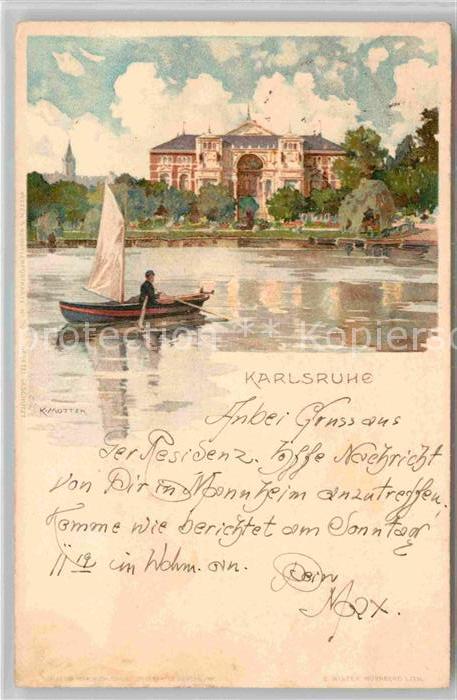 KARLSRUHE
K. MUTTER
Anbei Gruss aus
der Residenz. Hoffe Nachricht
von Dir in Mannheim anzutreffen.
Komme wie berichtet am Sonntag
11 19 in Wohm. an.
Dein
Max.
NÜRNBERG LITH.